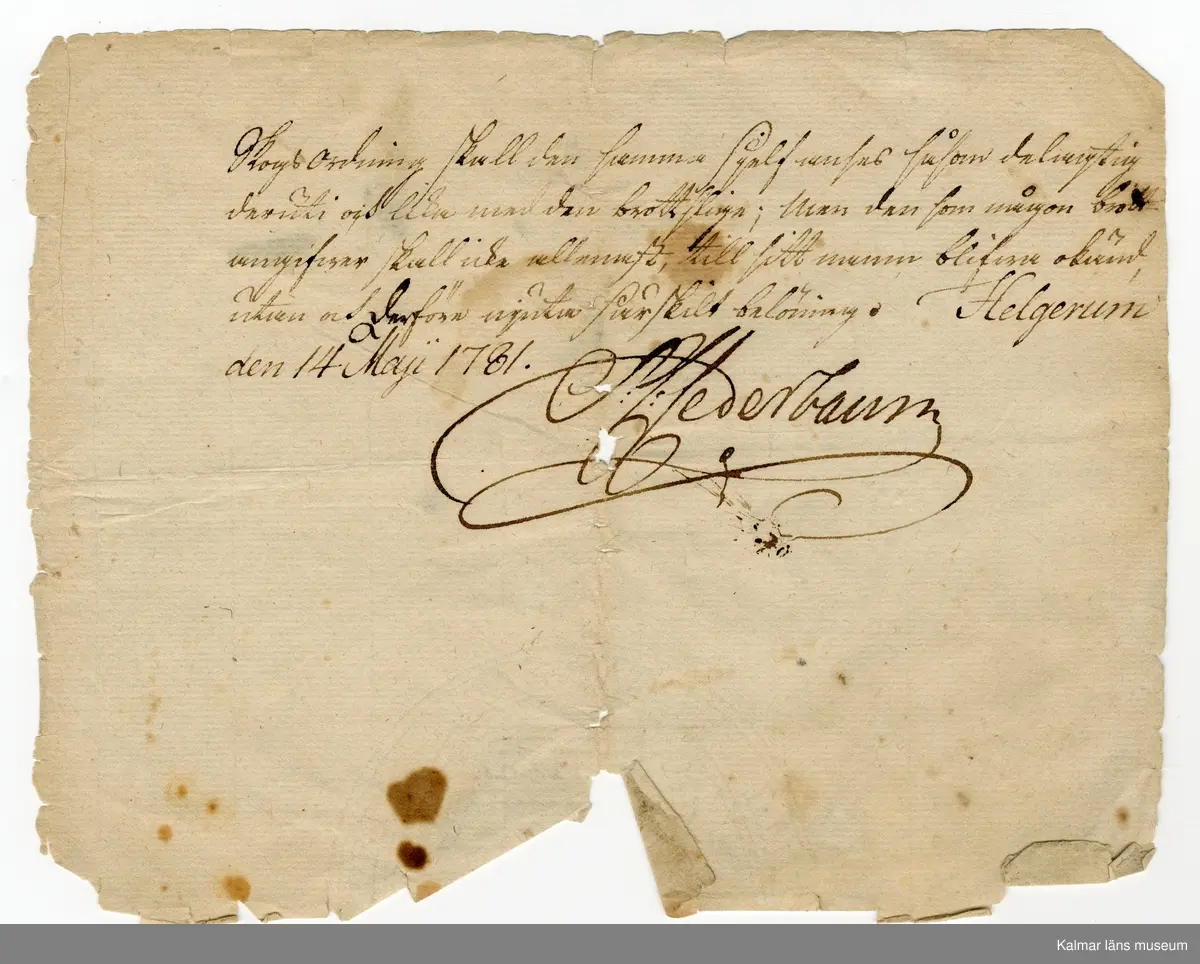 Skogs Ordning skall den samma sjelf anses såsom delagtig
deruti och lika med den brottslige; Men den som någon brott
angifwer skall icke allenast, till sitt namn blifwa okänd,
utan och derföre niuta särskilt belöning. Helgerum
den 14 Maji 1781.
Hederbaum
Kalmar läns museum